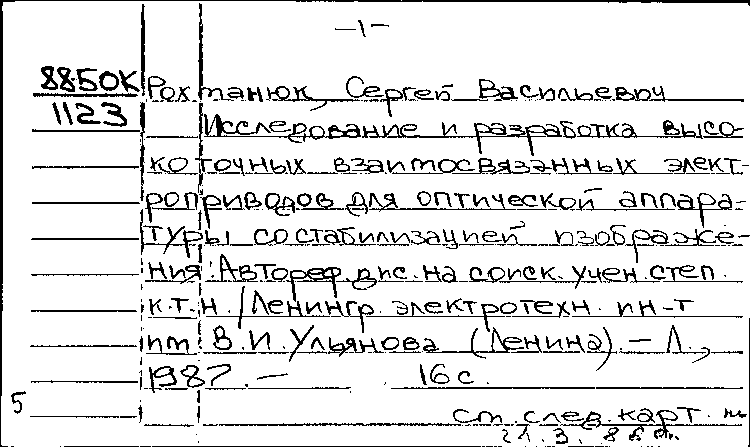 -1-
88-50К Рохманюк, Сергей Васильевич
1123 Исследование и разработка высо-
коточных взаимосвязанных элект-
роприводов для оптической аппара-
туры со стабилизацией изображе-
ния: Автореф. дис. на соиск. учен. степ.
к.т.н. / Ленингр. электротехн. ин-т
им. В.И. Ульянова (Ленина). - Л.,
1987. - 16 с.
5
см. след. карт.
21.3.88